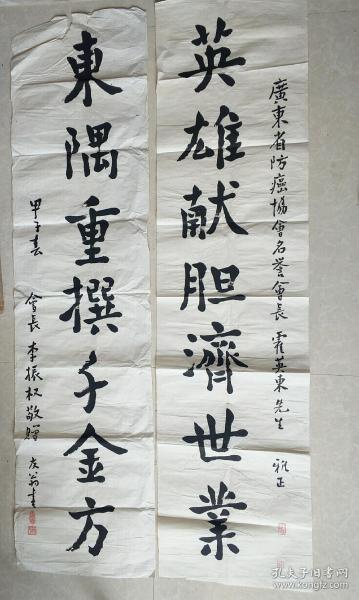 廣東省防癌協會名誉會長 霍英東先生 雅正
英雄献胆濟世業
東隅重撰千金方
甲子春 會長 李振权敬贈 友翁書
孔夫子旧书网